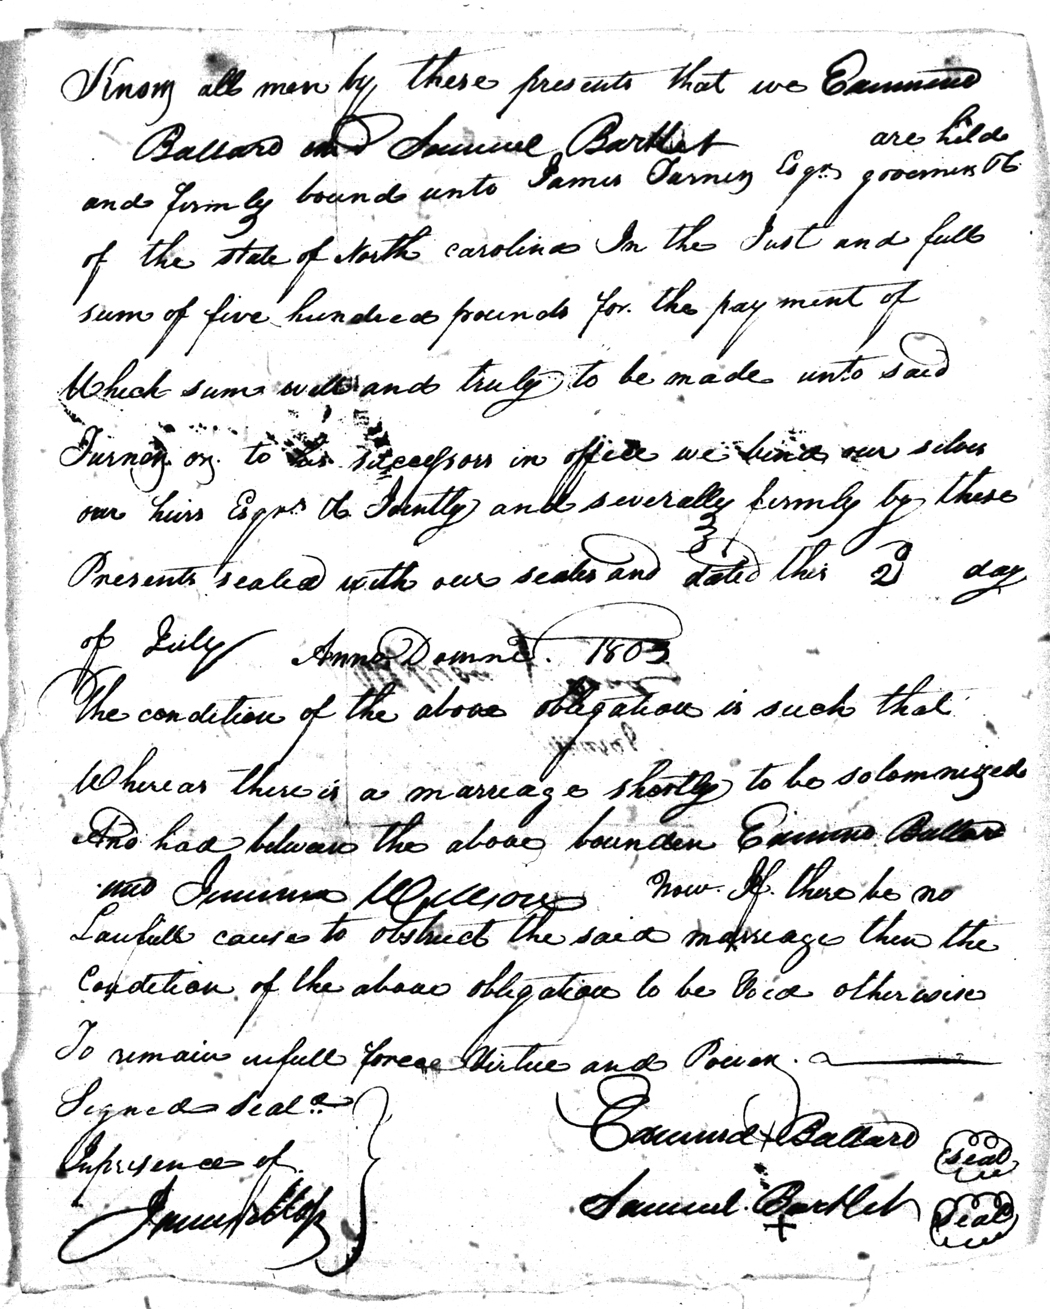 Know all men by these presents that we Edmund
Ballard and Samuel Bartlet are hild
and firmly bound unto James Turney Esqr governer &c
of the state of North carolina In the Just and full
sum of five hundred pounds for the payment of
Which sum well and truly to be made unto said
Turney or to his successors in office we bind our selves
our heirs Esqrs &c Jointly and severally firmly by these
Presents sealed with our seales and dated this 2d day
of July Anno Domne. 1803
The condition of the above obligation is such that
Whereas there is a marreage shortly to be solomnized
And had between the above bounden Edmund Ballard
and Now If there be no
Lawfull cause to obstruct the said marreage then the
Condition of the above obligation to be Void otherwise
To remain in full force Virtue and Power.
Signed Seald
Inpresence of
Edmund x Ballard seal
Samuel Bartlet seal
+